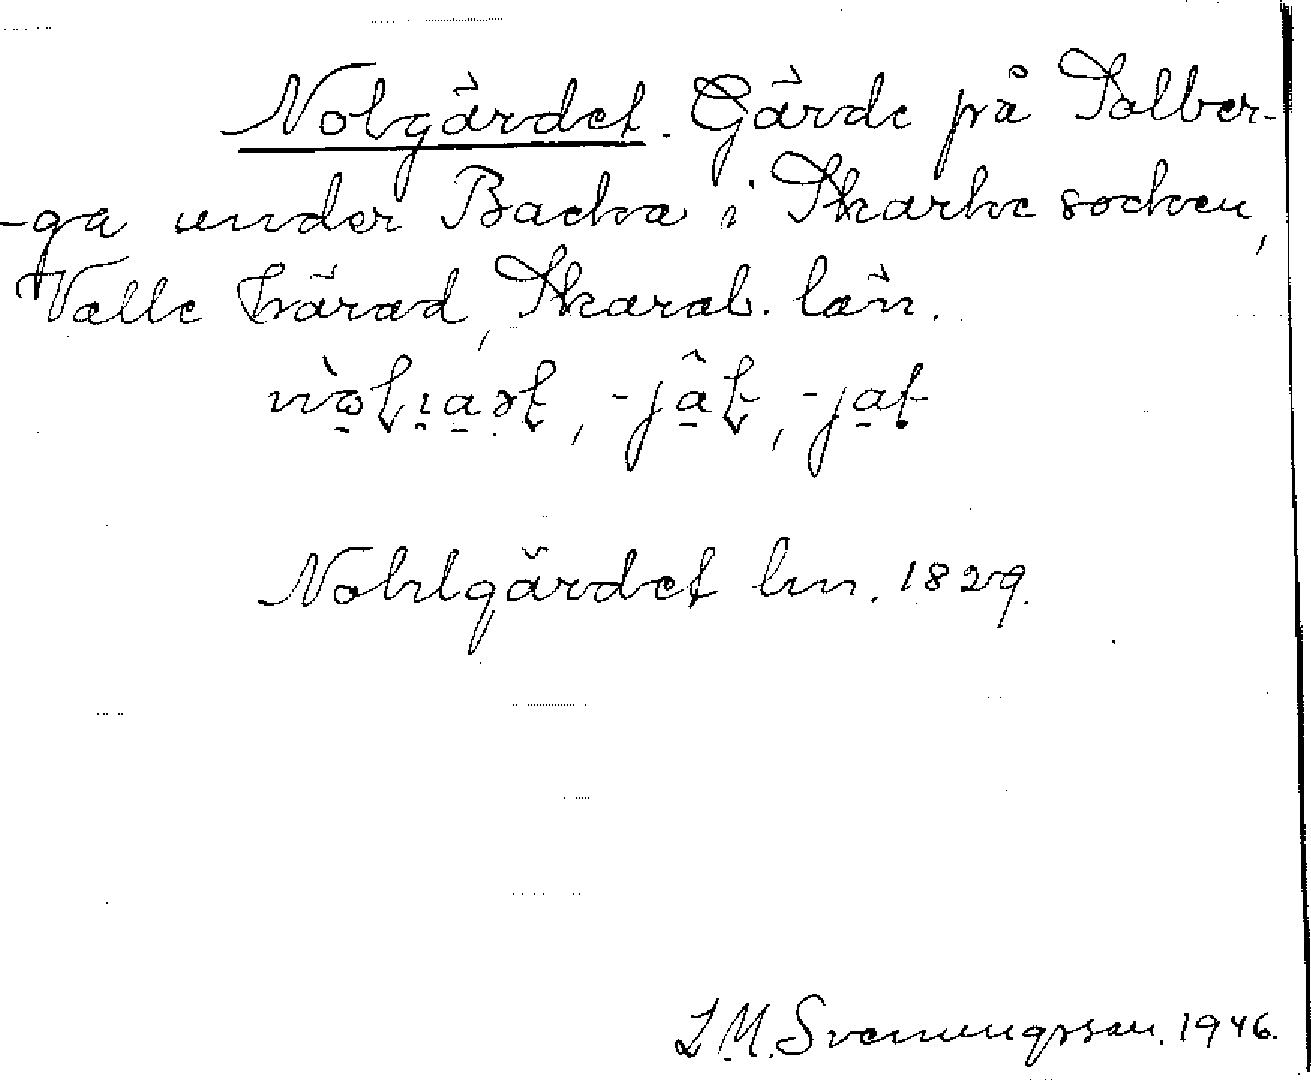 Nolgärdet. Gärde på Dalber-
-ga under Backa i Skarke socken,
Valle härad, Skarab. län.
Nohlgärdet lm. 1829.
J. M. Svenungsson. 1946.